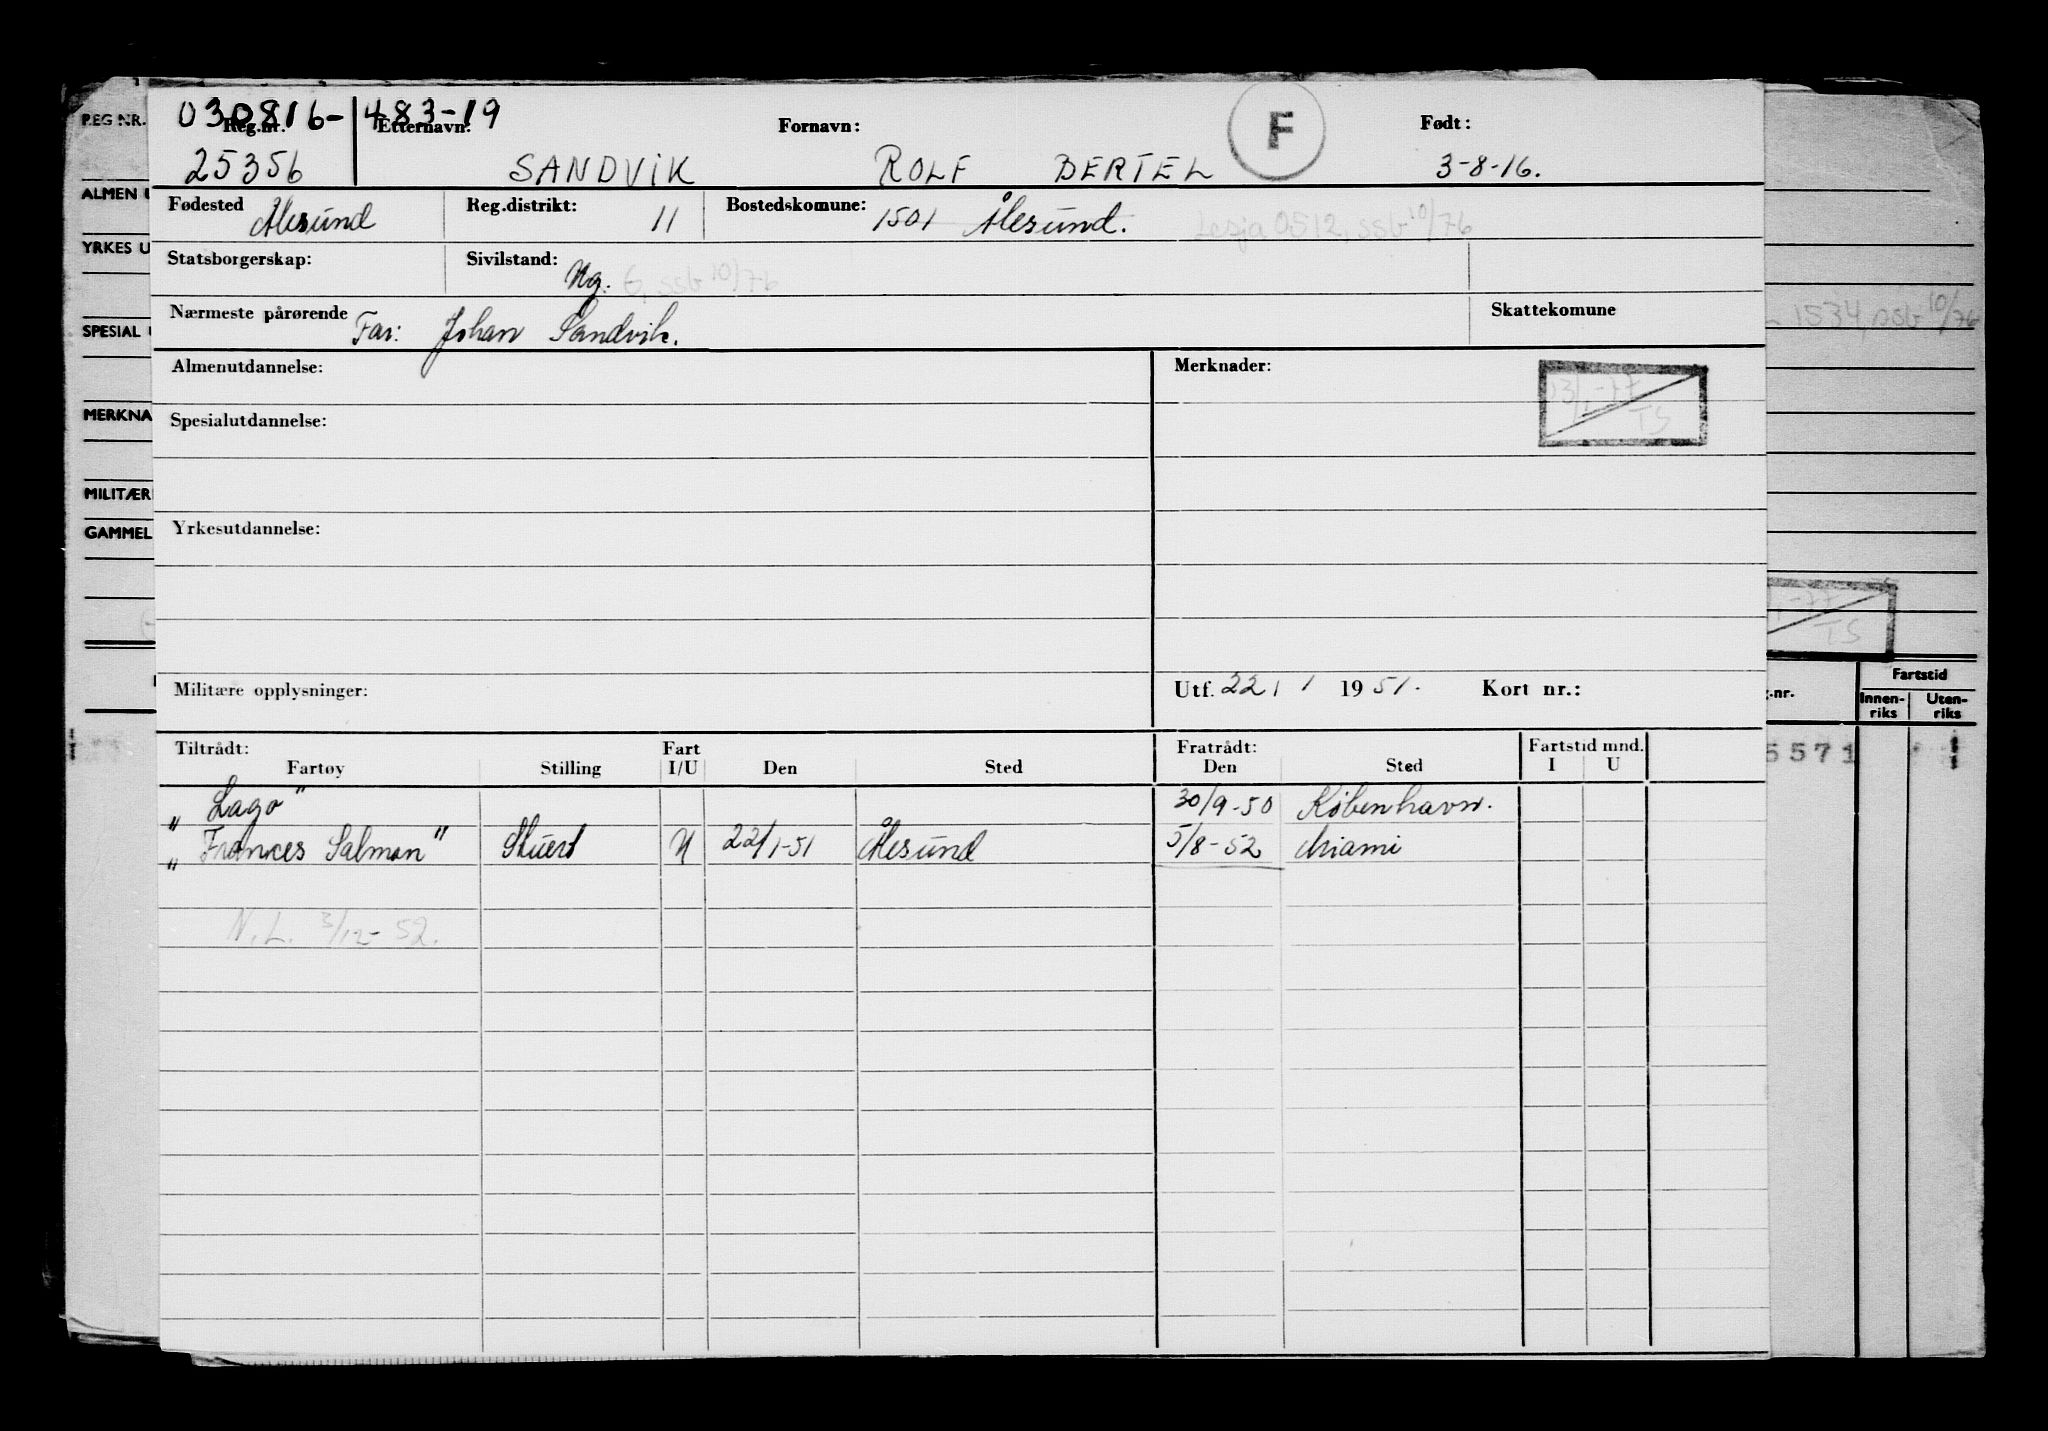 030816-483-19
REG NR.
Reg.nr. Etternavn: Fornavn: F Født:
25356 SANDVIK ROLF BERTEL 3-8-16.
ALMEN U
Fødested Ålesund Reg.distrikt: 11 Bostedskomune: 1501 Ålesund. Lesja 0512, ssb 10/76
YRKES U
Statsborgerskap: Sivilstand: Ug. G, ssb 10/76
Nærmeste pårørende Far: Johan Sandvik. Skattekomune
SPESIAL 1534, ssb 10/76
Almenutdannelse: Merknader: 13/1-77
TS
MERKNA
Spesialutdannelse:
MILITÆR
GAMMEL
Yrkesutdannelse:
-77
TS
Militære opplysninger: Utf. 22/1 1951. Kort nr.:
.nr. Fartstid
Innen-riks Uten-riks
Tiltrådt: Fart Fratrådt: Fartstid mnd.
Fartøy Stilling I/U Den Sted Den Sted I U
5571
"Lago" 30/9-50 København.
"Frances Salman" Stuert U 22/1-51 Ålesund 5/8-52 Miami
N.L. 3/12-52.